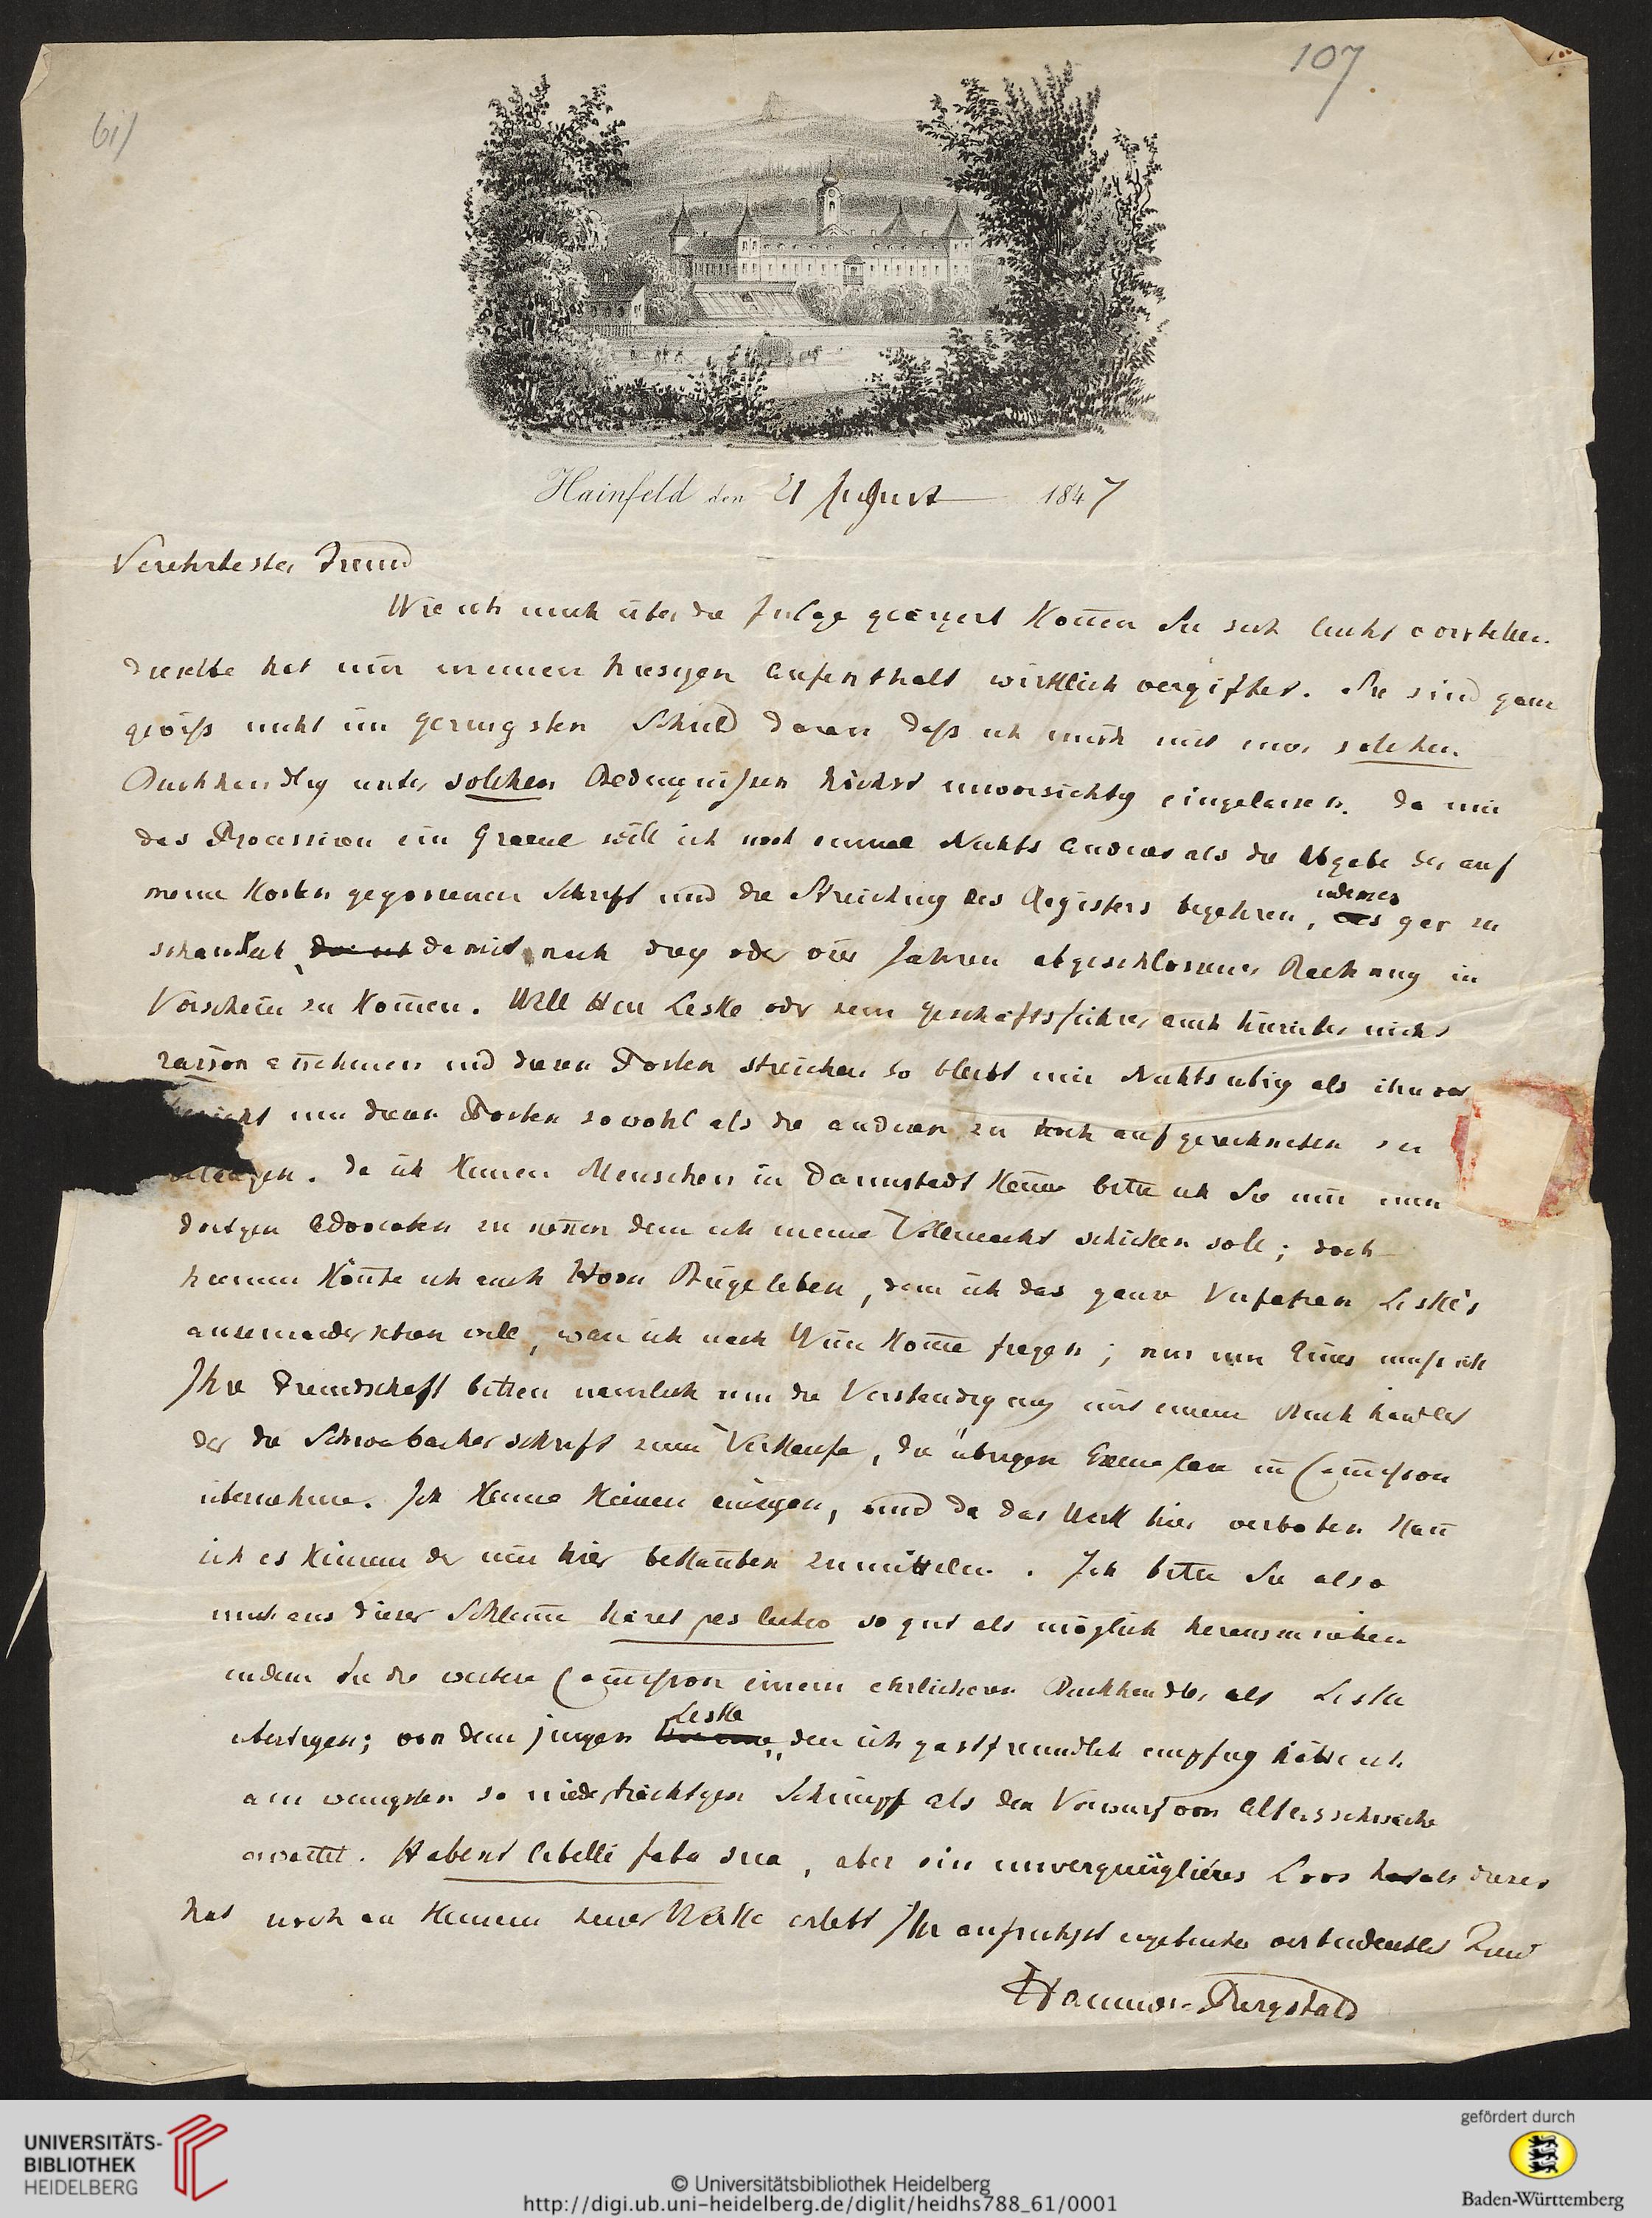 107
61)
Hainfeld den 21 August 1847
Verehrtester Freund
Wie ich mich über die Inlage geärgert koñen Sie sich leicht vorstellen
dieselbe hat mir meinen hiesigen Aufenthalt wirklich vergiftet. Sie sind ganz
gewiß nicht im geringsten Schuld daran daß ich mich mit einer solchen
Buchhandlg unter solchen Bedingnißen höchst unvorsichtig eingelassen. Da mir
das Processiren ein Graeuel will ich noch einmal Nichts anderes als die Abgabe der auf
meine Kosten gegossenen Schrift und die Streichung des Registers begehren, indem es gar zu
schändlich damit nach drey oder vier Jahren abgeschlossener Rechnung in
Vorschein zu koṁen. Will Herr Leske oder sein Geschäftsführer auch hierüber nicht
raison añehmen und diesen Posten streichen so bleibt mir Nichts übrig als ihn vor
um diesen Posten sowohl als die anderen zu hoch aufgerechneten zu
. Da ich keinen Menschen in Darmstadt keñe bitte ich Sie mir einen
dortigen Advocaten zu neñen dem ich meine Vollmacht schicken soll; doch
hierum köñte ich auch Hrrn Biegeleben, dem ich das ganze Verfahren Leske's
auseinandersetzen will, wañ ich nach Wien koṁe fragen; nur um Eines muß ich
Ihre Freundschaft bitten nämlich um die Verständigung mit einem Buchhändler
der die Schwabacherschrift zum Verkaufe, die übrigen Exemplare in Coṁission
übernehme. Ich kenne keinen einzigen, und da das Werk hier verboten kañ
ich es keinem der mir hier bekañten zumitteln. Ich bitte Sie also
mich aus dieser Schlaṁe haeret pes luteo so gut als möglich herauszuziehen
indem Sie die weitere Coṁission einem ehrlicheren Buchhändler als Leske
übertragen; von dem jungen Leske, den ich gastfreundlich empfing hätte ich
am wenigsten so niederträchtigen Schimpf als den Vorwurf von Altersschwäche
erwartet. Habent libelli fata sua, aber ein unvergnüglicheres Loos als dieses
hat noch an keinem seiner Werke erlebt Ihr aufrichtigst ergebenster verbindenster Freund
Hammer-Purgstall
UNIVERSITÄTS-
BIBLIOTHEK
HEIDELBERG
© Universitätsbibliothek Heidelberg
http://digi.ub.uni-heidelberg.de/diglit/heidhs788_61/0001
gefördert durch
Baden-Württemberg